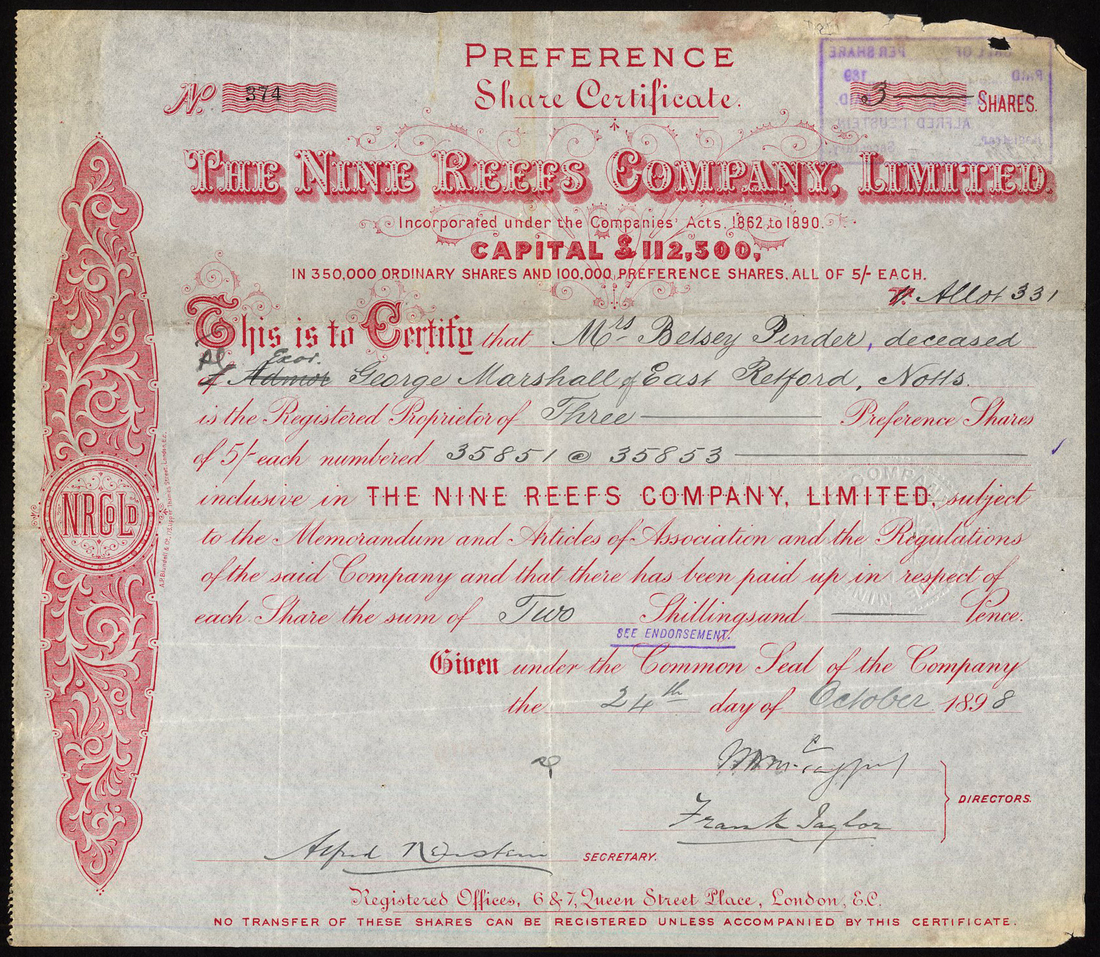 PREFERENCE
Share Certificate.
No 374
3 SHARES.
THE NINE REEFS COMPANY, LIMITED.
Incorporated under the Companies' Acts, 1862 to 1890.
CAPITAL £112,500,
IN 350,000 ORDINARY SHARES AND 100,000 PREFERENCE SHARES, ALL OF 5/- EACH.
Allot 331
This is to Certify that Mrs Betsey Pinder, deceased
Exor.
of Admor George Marshall of East Retford, Notts.
is the Registered Proprietor of Three Preference Shares
of 5/- each numbered 35851 @ 35853
inclusive in THE NINE REEFS COMPANY, LIMITED, subject
to the Memorandum and Articles of Association and the Regulations
of the said Company and that there has been paid up in respect of
each Share the sum of Two Shillings and Pence.
SEE ENDORSEMENT.
Given under the Common Seal of the Company
the 24th day of October 1898
Frank Taylor
DIRECTORS.
Alfred SECRETARY.
Registered Offices, 6 & 7, Queen Street Place, London, E.C.
NO TRANSFER OF THESE SHARES CAN BE REGISTERED UNLESS ACCOMPANIED BY THIS CERTIFICATE.
NRCoLD